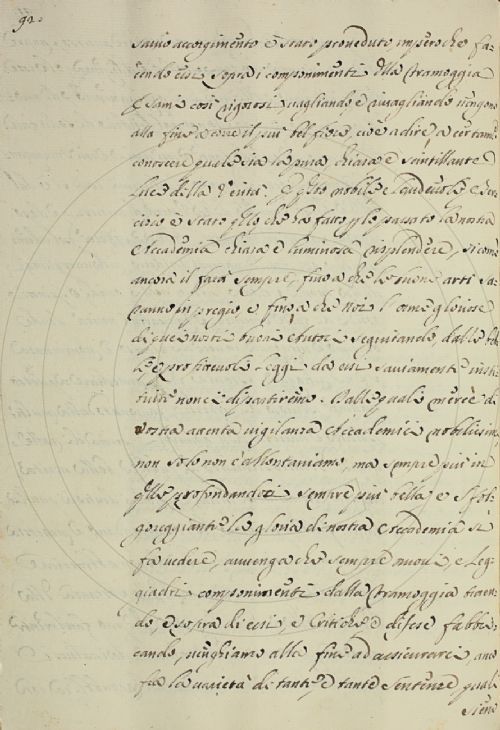 92.
savio accorgimento è stato proveduto imperochè fa=
cendosi sopra i componimenti della Tramoggia
esami così rigorosi, vagliando, e rivagliando vengono
alla fine a corre il più bel fiore, cioè a dire, a certame
conoscere quale sia la pura chiara e scintillante
luce della Verità. E questo nobile e laudevole eser
cizio è stato quello che ha fatto per lo passato la nostra
Accademia chiara e luminosa risplendere, siccome
ancora il farà sempre, fino a che le buone arti sa
ranno in pregio, e fino a che noi l'orme gloriose
di que' nostri buoni seguitando, dalle
e profittevoli leggi da essi saviamente insti
tuite non ci dipartiremo. Dalle quali mercè di
vostra attenta vigilanza Accademici nobilissimi,
non solo non c'allontaniamo, ma sempre più in
quelle profondandoci sempre più bella, e sfol
goreggiante la gloria di nostra Accademia si
fa vedere, avvenga che sempre nuovi, e leg
giadri componimenti dalla Tramoggia traen
do, e sopra di essi, e Critiche e difese fabbri
cando, venghiamo alla fine ad assicurarci, anco
fra la varietà di tante, e tante sentenze, quali
siene